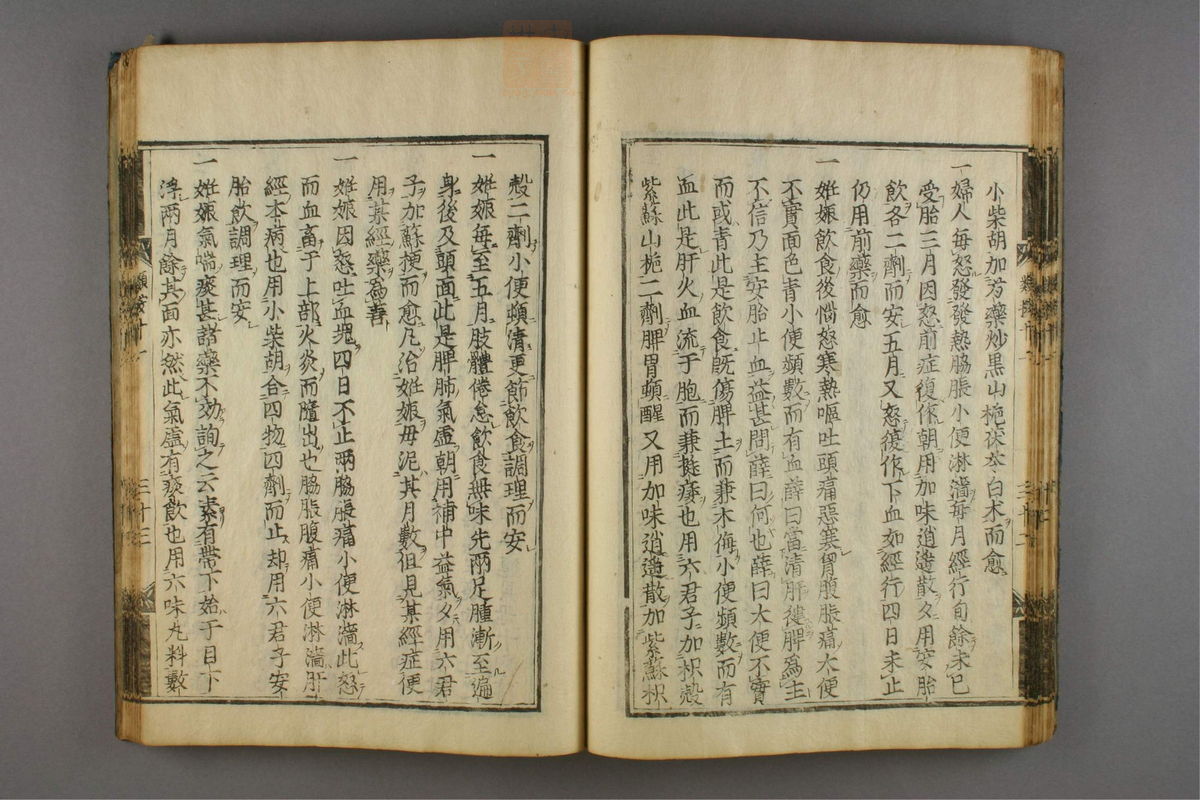 小柴胡加芍藥炒黒山梔茯苓白术而愈
一婦人毎怒發發熱脇脹小便淋濇毎月經行旬餘未已
受胎三月因怒前症復作朝用加味逍遥散夕用安胎
飲各二劑而安五月又怒復作下血如經行四日未止
仍用前藥而愈
一姙娠飲食後憤怒寒熱嘔吐頭痛惡寒胃腹脹痛大便
不實面色青小便頻數而有血薛曰當清肝徤脾為主
不信乃主安胎止血益甚問薛曰何也薛曰大便不實
而或青此是飲食既傷脾土而兼木侮小便頻數而有
血此是肝火血流于胞而兼挺痿也用六君子加枳殼
紫蘇山梔二劑脾胃頓醒又用加味逍遥散加紫蘇枳
殼二劑小便頓清更節飲食調理而安
一姙娠毎至五月肢體倦怠飲食無味先兩足腫漸至遍
身後及頭面此是脾肺氣虛朝用補中益氣夕用六君
子加蘇梗而愈凡治姙娠毋泥其月數徂見某經症便
用某經藥為善
一姙娠因怒吐血塊四日不止兩脇脹痛小便淋濇此怒
而血畜于上部火炎而隨出也脇脹腹痛小便淋濇肝
經本病也用小柴胡合四物四劑而止却用六君子安
胎飲調理而安
一姙娠氣喘痰甚諸藥不効詢之云素有帶下始于目下
浮兩月餘其面亦然此氣虛有痰飲也用六味丸料數
三十三